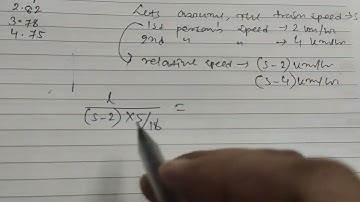 2.82
3.78
4.75
Lets assume, the train speed → s
1st persons speed → 2 km/hr
2nd " " → 4 km/hr
relative speed → (s-2) km/hr
(s-4) km/hr
l
(s-2) × 5/18 =